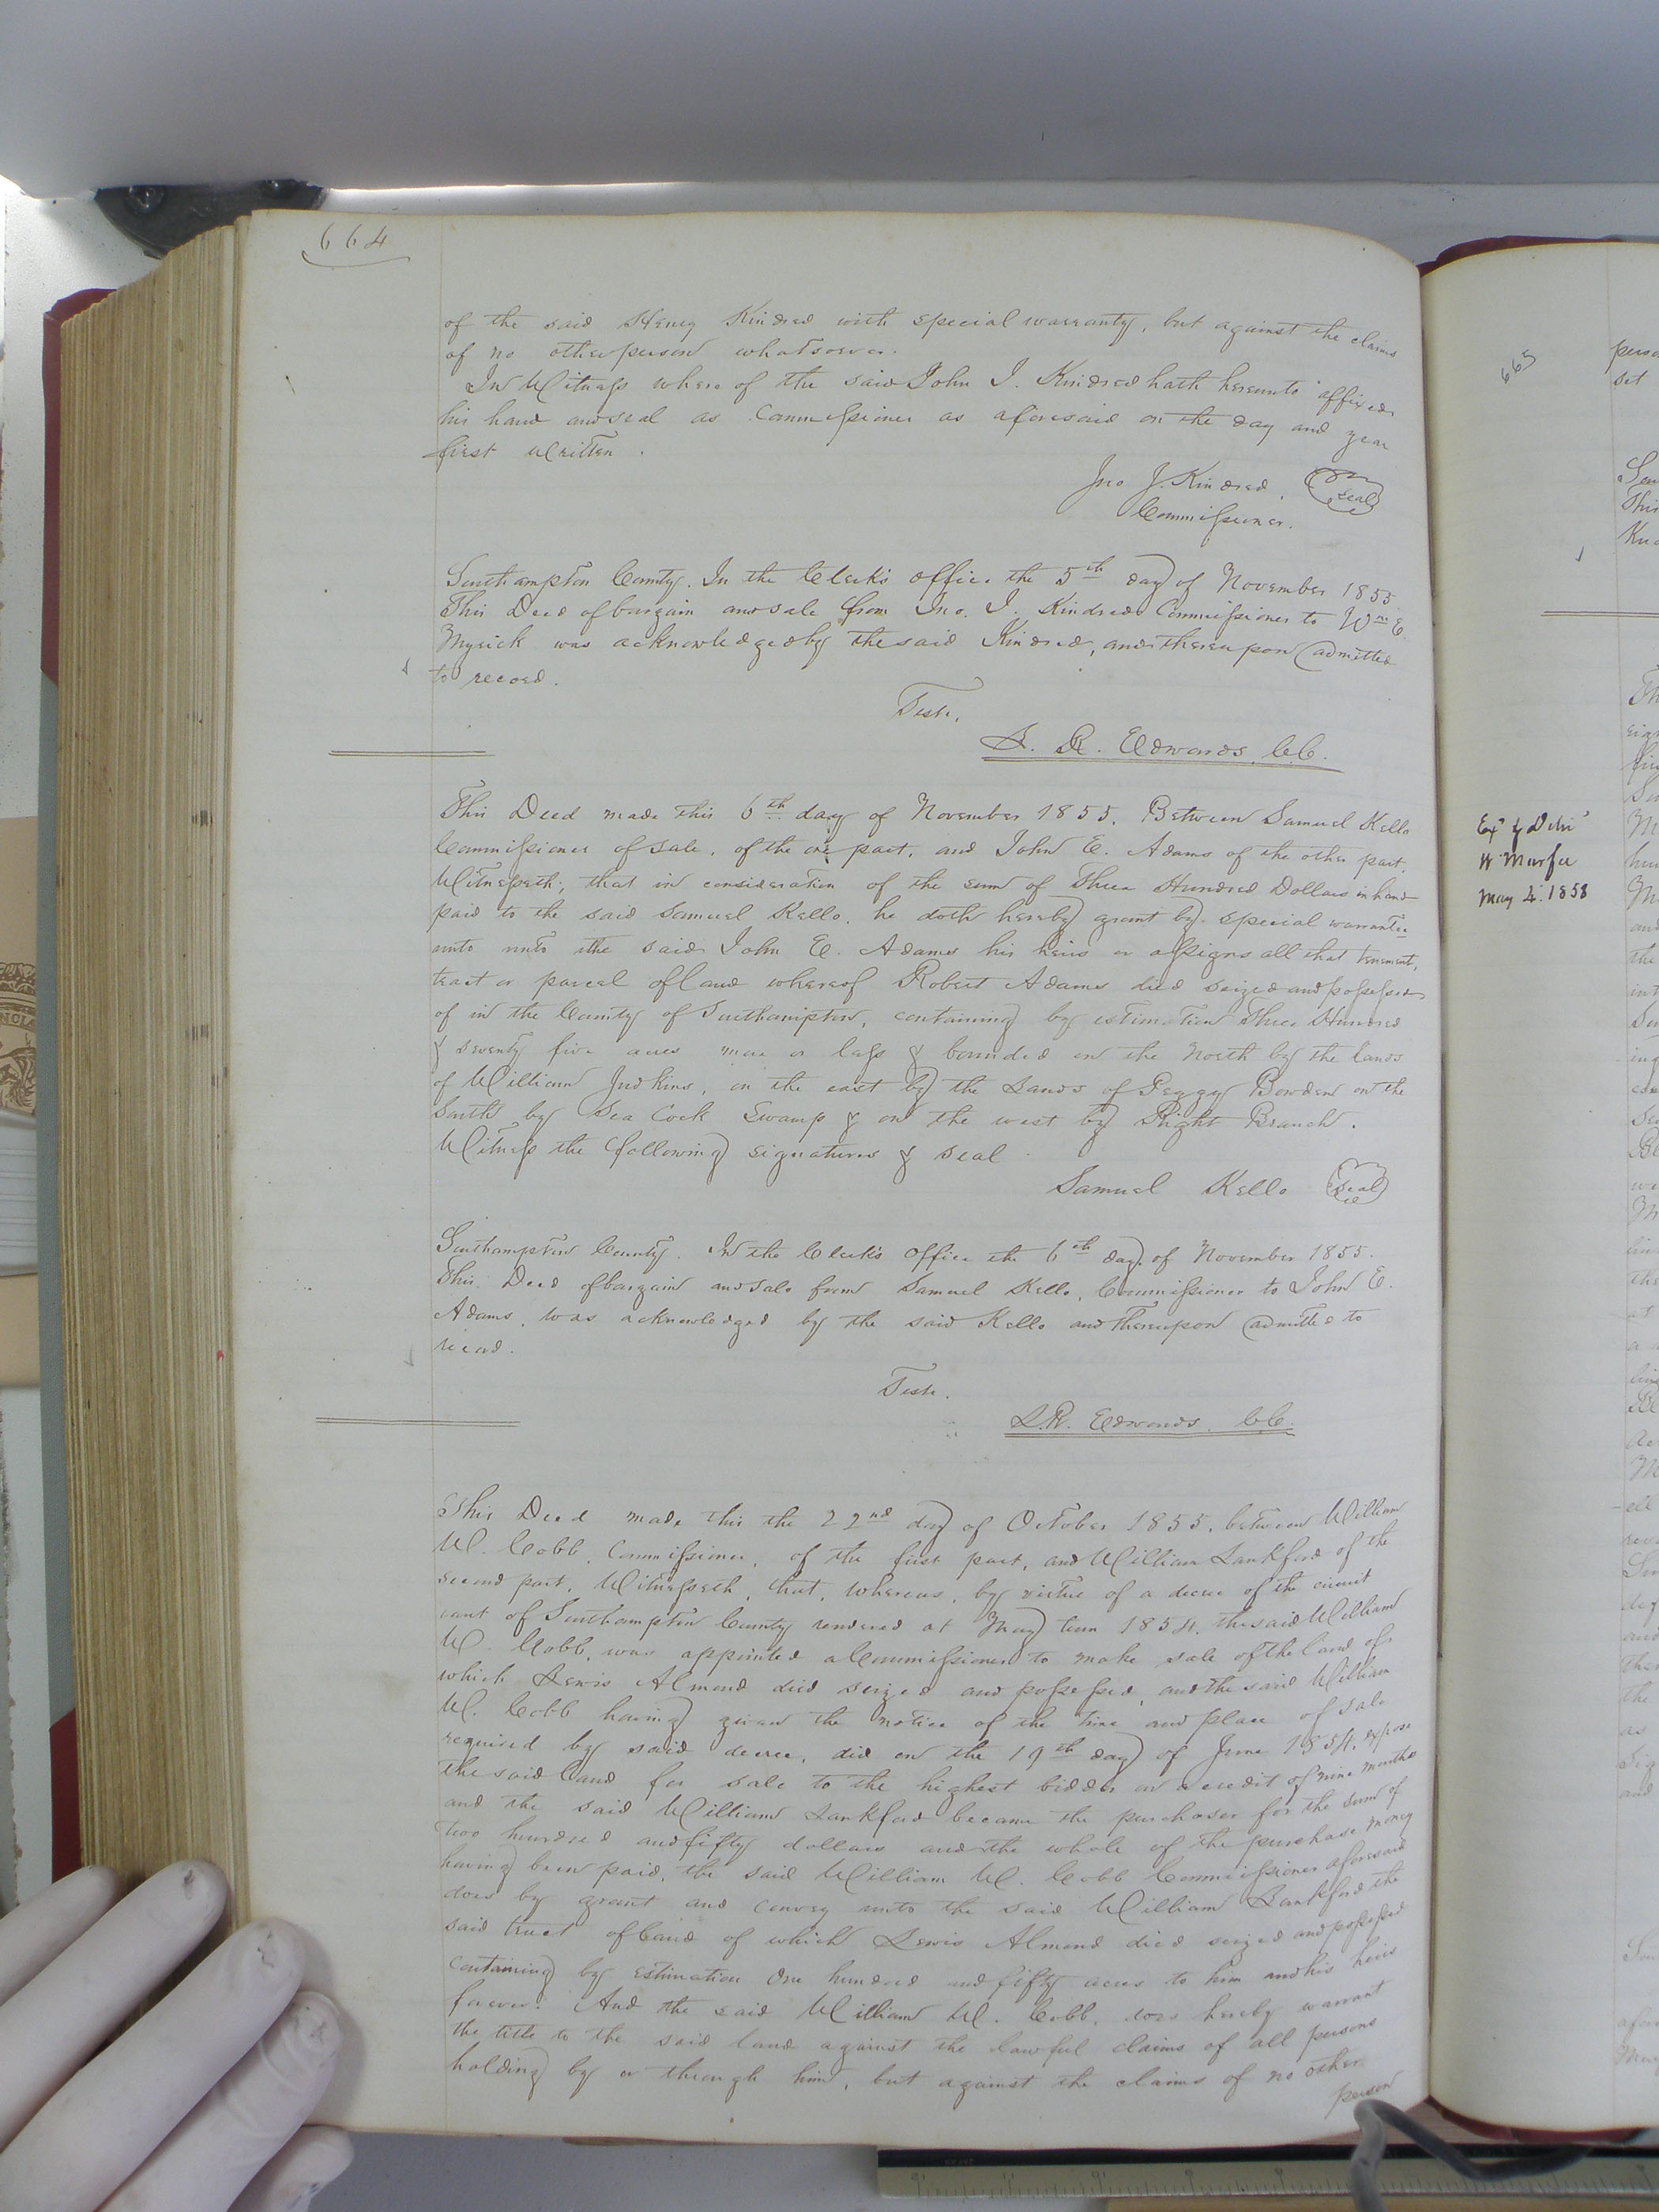 664
of the said Henry Kindred with special warranty, but against the claims
of no other person whatsoever.
In Witness where of the said John J. Kindred hath hereunto affixed
his hand and seal as Commissioner as aforesaid on the day and year
first written.
Jno J. Kindred, Seal
Commissioner.
Southampton County. In the Clerk's office the 5th day of November 1855
This Deed of bargain and sale from Jno. J. Kindred Commissioner to Wm E.
Myrick was acknowledged by the said Kindred, and thereupon admitted
to record.
Teste,
L. R. Edwards, C.C.
This Deed made this 6th day of November 1855, Between Samuel Kello
Commissioner of sale, of the one part, and John E. Adams of the other part.
Witnesseth; that in consideration of the sum of Three Hundred Dollars in hand
paid to the said Samuel Kello, he doth hereby grant by special warrantee
unto unto the said John E. Adams his heirs or assigns all that tenement,
tract or parcel of land whereof Robert Adams died seized and possessed
of in the County of Southampton, containing by estimation Three Hundred
& seventy five acres more or less & bounded on the North by the lands
of William Judkins, on the east by the Lands of Peggy Bowden on the
South by Sea Cock Swamp & on the west by Right Branch.
Witness the following signatures & seal
Samuel Kello Seal
Southampton County. In the Clerk's Office the 6th day of November 1855.
This Deed of bargain and sale from Samuel Kello, Commissioner to John E.
Adams, was acknowledged by the said Kello and Thereupon admitted to
record.
Teste.
L.R. Edwards. C.C.
This Deed made this the 22nd day of October 1855, between William
W. Cobb, Commissioner, of the first part, and William Lankford of the
second part, Witnesseth, that, whereas, by virtue of a decree of the circuit
court of Southampton County rendered at May term 1854, the said William
W. Cobb, was appointed a Commissioner to make sale of the land of
which Lewis Almond died seized and possessed, and the said William
W. Cobb having given the notice of the time and place of sale
required by said decree, did on the 19th day of June 1854, expose
the said land for sale to the highest bidder on a credit of nine months
and the said William Lankford became the purchaser for the sum of
two hundred and fifty dollars and the whole of the purchase money
having been paid, the said William W. Cobb Commissioner aforesaid
does by grant and convey unto the said William Lankford the
said tract of Land of which Lewis Almond died seized and possessed
containing by estimation One hundred and fifty acres to him and his heirs
forever. And the said William W. Cobb, does hereby warrant
the title to the said land against the lawful claims of all persons
holding by or through him, but against the claims of no other
person
665
set
May 4. 1858